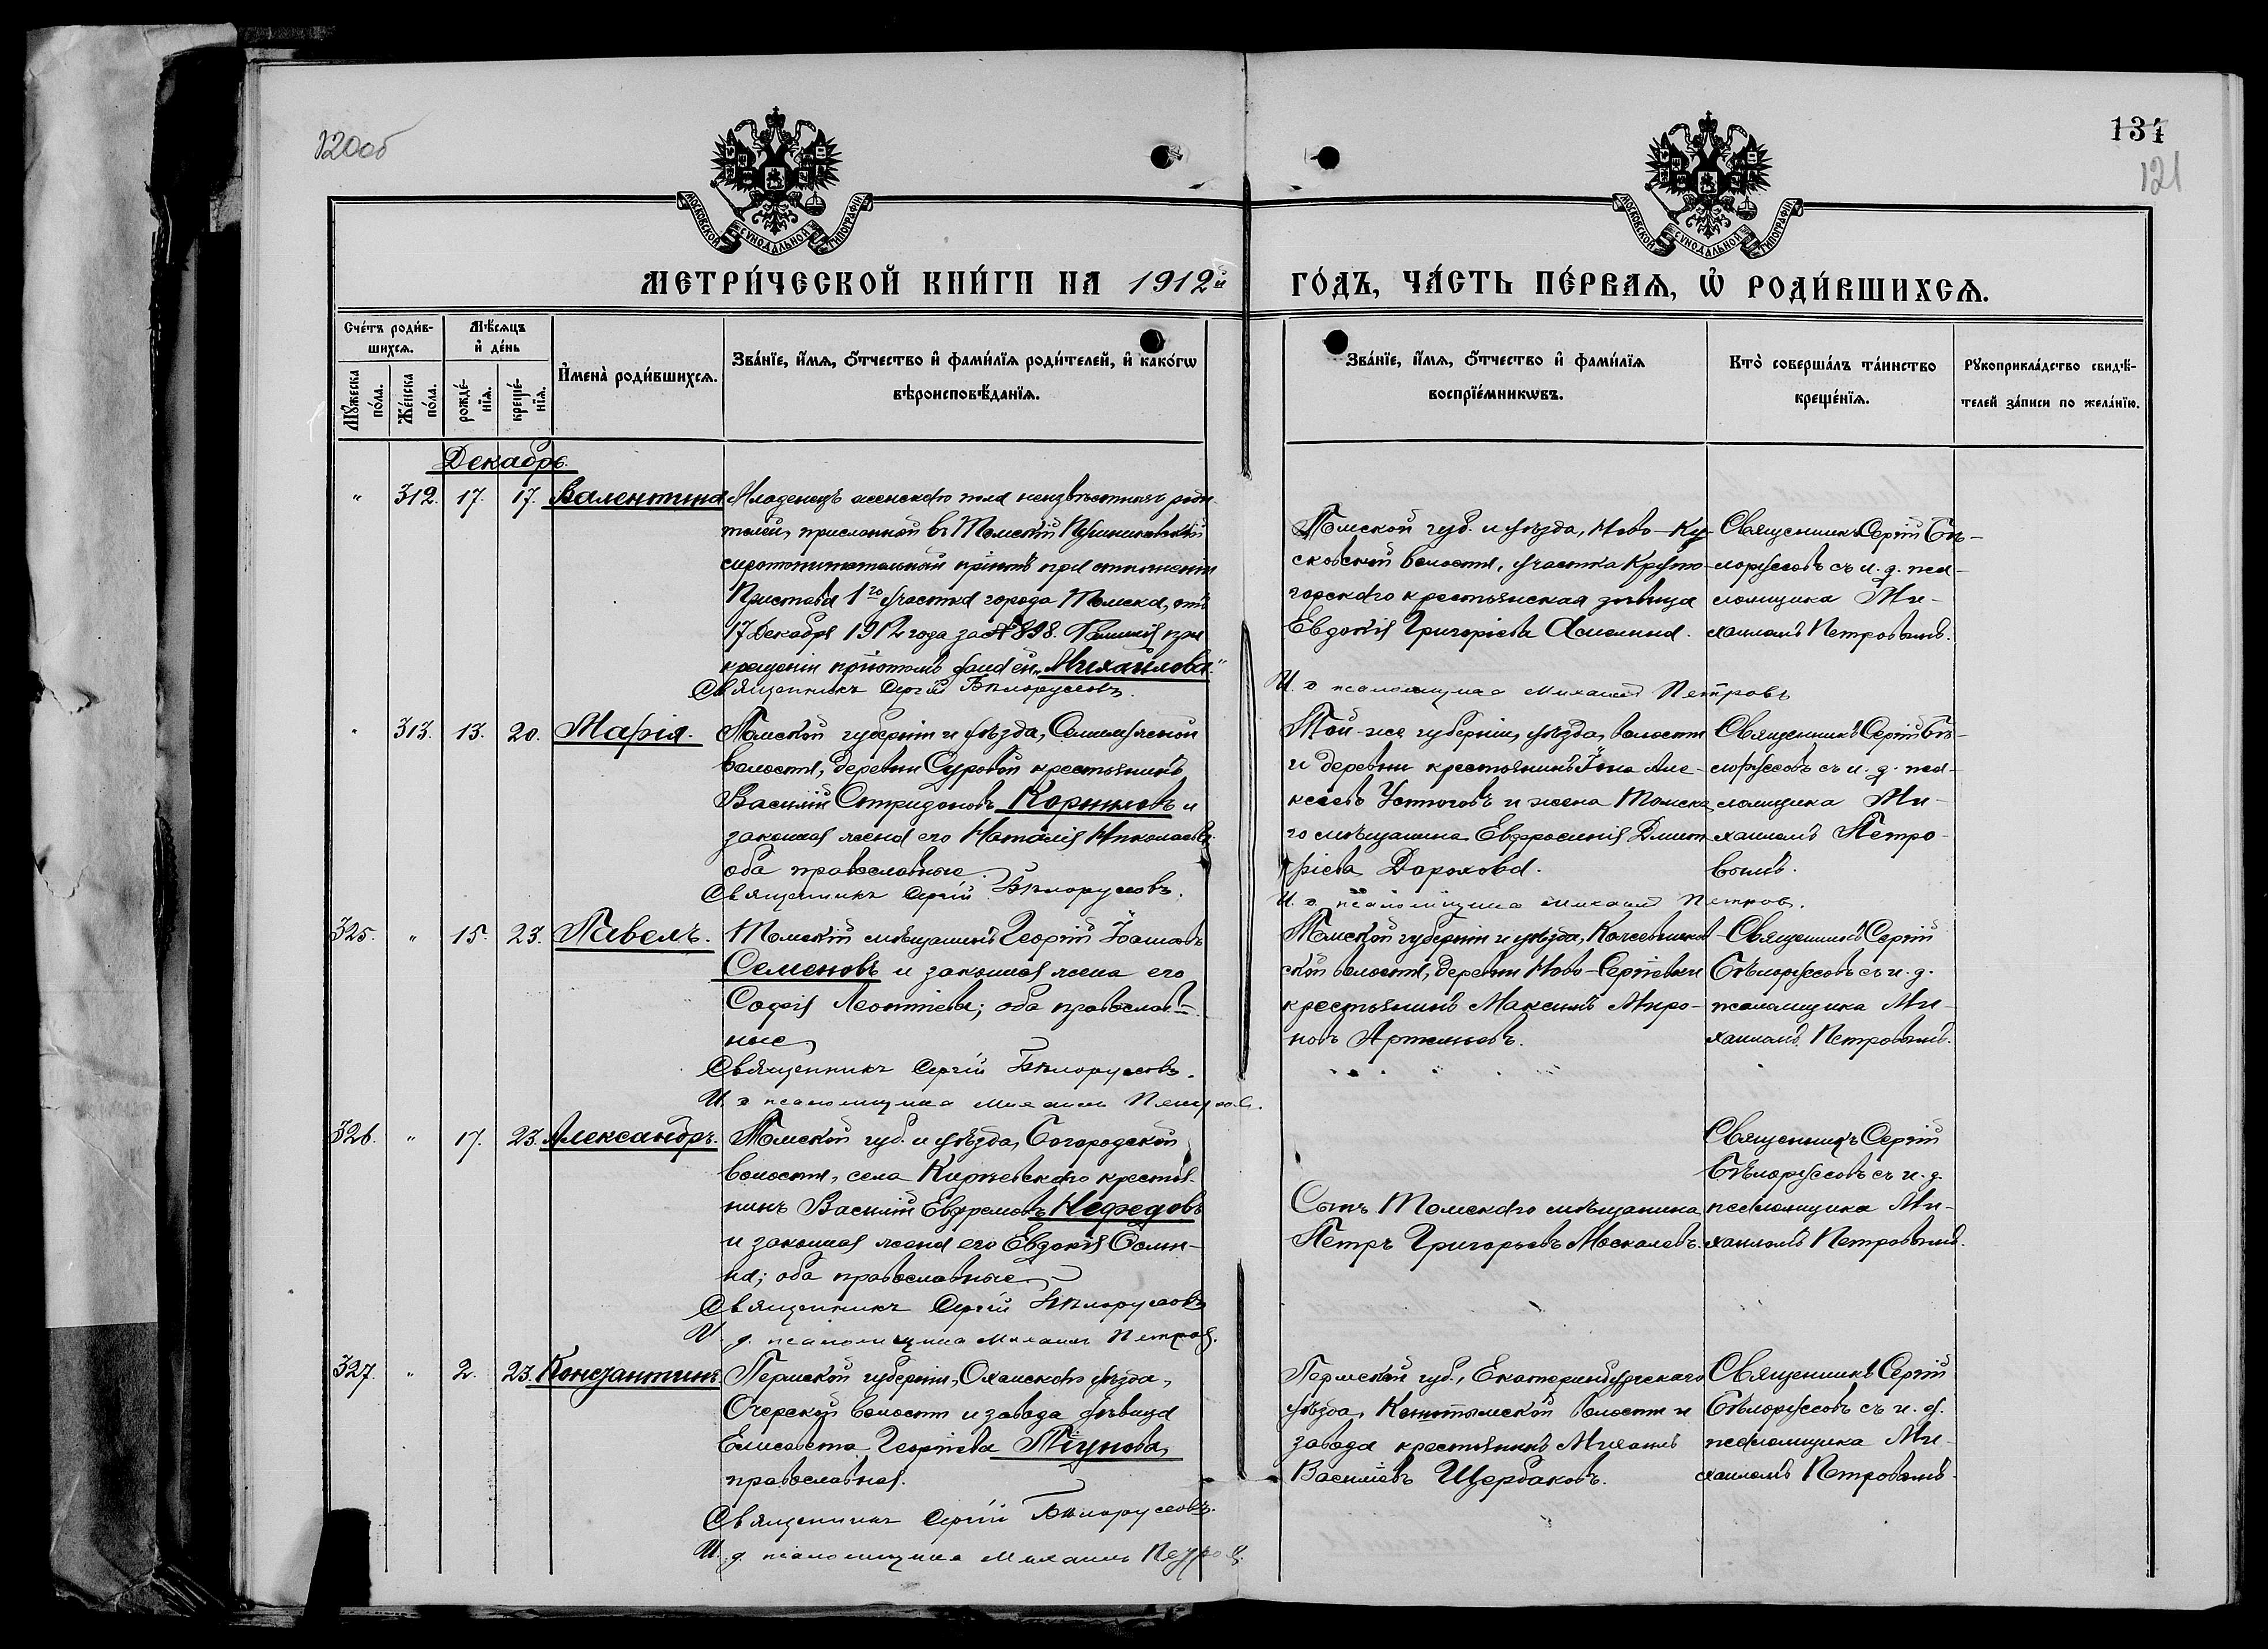 120об
134
121
МОСКОВСКОЙ СѴНОДАЛЬНОЙ ТИПОГРАФІИ
МОСКОВСКОЙ СѴНОДАЛЬНОЙ ТИПОГРАФІИ
МЕТРИ́ЧЕСКОЙ КНИ́ГИ НА 1912й ГО́ДЪ, ЧА́СТЬ ПЕ́РВАѦ, Ѡ҆ РОДИ́ВШИХСѦ.
Сче́тъ роди́в-
шихсѧ.
Мꙋ́жеска
по́ла.
Же́нска
по́ла.
Мѣ́сѧцъ
и҆ де́нь
рожде́-
нїѧ.
креще́-
нїѧ.
И҆мена̀ роди́вшихсѧ.
Зва́нїе, и҆́мѧ, ѻ҆́тчество и҆ фами́лїѧ роди́телей, и҆ како́гѡ
вѣроисповѣ́данїѧ.
Зва́нїе, и҆́мѧ, ѻ҆́тчество и҆ фами́лїѧ
воспрїе́мникѡвъ.
Кто̀ соверша́лъ та́инство
креще́нїѧ.
Рꙋкоприкла́дство свидѣ́-
телей за́писи по жела́нїю.
Декабрь.
" 312. 17. 17. Валентина
Младенецъ женскаго пола неизвѣстныхъ роди-
телей, присланной въ Томскій Пушниковскій
сиропитательный пріютъ при отношеніи
Пристава 1го участка города Томска, отъ
17 Декабря 1912 года за № 898. Фамилія при
крещеніи пріютомъ дана ей "Михайлова".
Священникъ Сергій Бѣлоруссовъ.
Томской губ. и уѣзда, Ново-Ку-
сковской волости, участка Круто-
горскаго крестьянская дѣвица
Евдокія Григоріева
И. д. псаломщика Михаилъ Петровъ
Священникъ Сергій Бѣ-
лоруссовъ съ и. д. пса-
ломщика Ми-
хаиломъ Петровымъ.
" 313. 13. 20. Марія.
Томской губерніи и уѣзда, Семилужной
волости, деревни Суровой крестьянинъ
Василій Спиридоновъ Корниловъ и
законная жена его Наталія Николаева
оба православные.
Священникъ Сергій Бѣлоруссовъ.
Той-же губерніи, уѣзда, волости
и деревни крестьянинъ Іона Але-
ксѣевъ Устюговъ и жена Томска-
го мѣщанина Евфросинія Дмит-
ріева Дорохова.
И. д. псаломщика Михаилъ Петровъ.
Священникъ Сергій Бѣ-
лоруссовъ съ и. д. пса-
ломщика Ми-
хаиломъ Петро-
вымъ.
325. " 15. 23. Павелъ.
Томскій мѣщанинъ Георгій Іоановъ
Семеновъ и законная жена его
Софія Леонтіева; оба православ-
ные
Священникъ Сергій Бѣлоруссовъ.
И. д. псаломщика Михаилъ Петровъ.
Томской губерніи и уѣзда, Кожевников-
ской волости, деревни Ново-Сергіевки
крестьянинъ Максимъ Миро-
новъ Артемьевъ.
Священникъ Сергій
Бѣлоруссовъ съ и. д.
псаломщика Ми-
хаиломъ Петровымъ.
326. " 17. 23. Александръ.
Томской губ. и уѣзда, Богородской
волости, села Киреевскаго крестья-
нинъ Василій Евфремовъ Нефедовъ
и законная жена его Евдокія Фоми-
на; оба православные
Священникъ Сергій Бѣлоруссовъ
И. д. псаломщика Михаилъ Петровъ.
Сынъ Томскаго мѣщанина
Петръ Григорьевъ Москалевъ.
Священникъ Сергій
Бѣлоруссовъ съ и. д.
псаломщика Ми-
хаиломъ Петровымъ.
327. " 2. 23. Константинъ.
Пермской губерніи, Оханскаго уѣзда,
Очерской волости и завода дѣвица
Елисавета Георгіева Тіунова,
православная.
Священникъ Сергій Бѣлоруссовъ.
И. д. псаломщика Михаилъ Петровъ.
Пермской губ., Екатеринбургскаго
уѣзда, Кыштымской волости и
завода крестьянинъ Михаилъ
Василіевъ Щербаковъ.
Священникъ Сергій
Бѣлоруссовъ съ и. д.
псаломщика Ми-
хаиломъ Петровымъ.